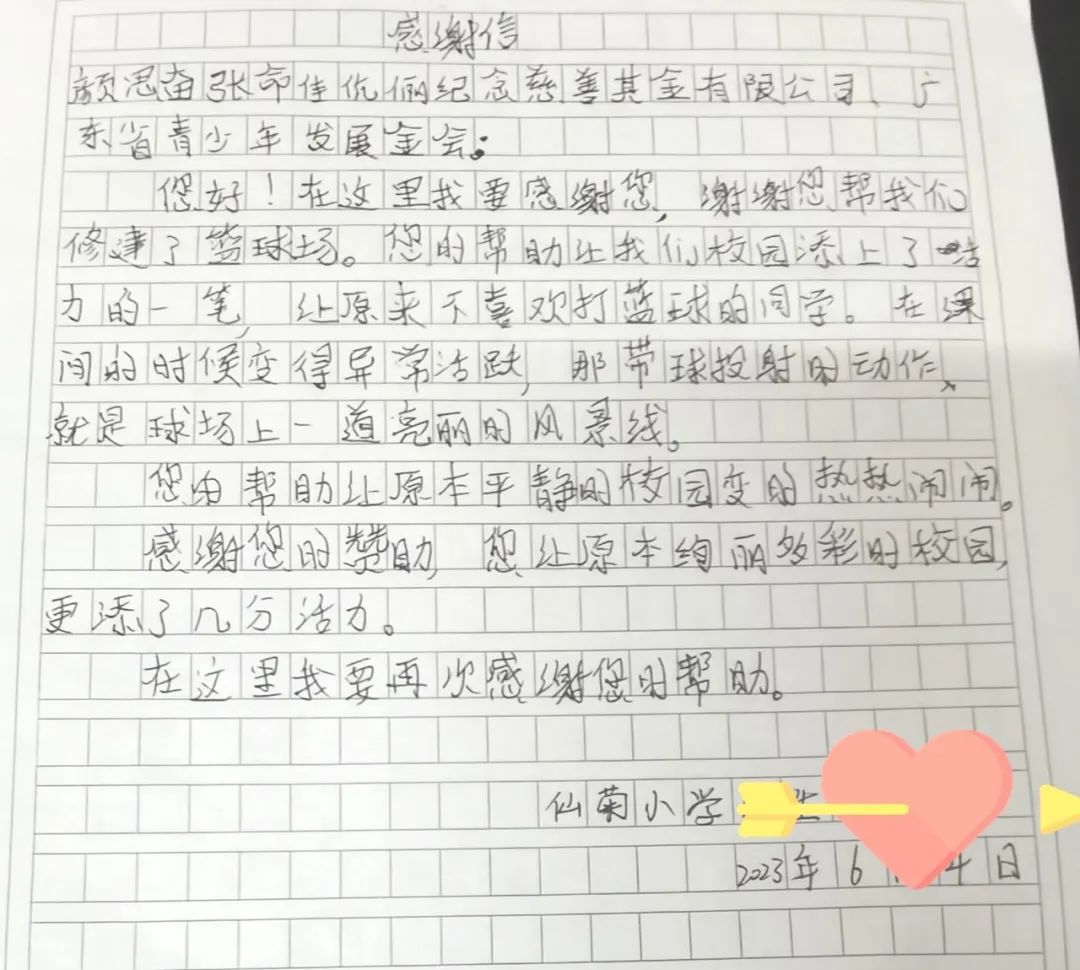 感谢信
颜思奋张命佳伉俪纪念慈善其金有限公司、广
东省青少年发展金会:
您好！在这里我要感谢您，谢谢您帮我们
修建了篮球场。您的帮助让我们校园添上了活
力的一笔，让原来不喜欢打蓝球的同学。在课
间的时候变得异常活跃，那带球投射的动作、
就是球场上一道亮丽的风景线。
您由帮助让原本平静的校园变的热热闹闹。
感谢您的赞助，您让原本绚丽多彩的校园，
更添了几分活力。
在这里我要再次感谢您的帮助。
仙菊小学
2023年6 4日